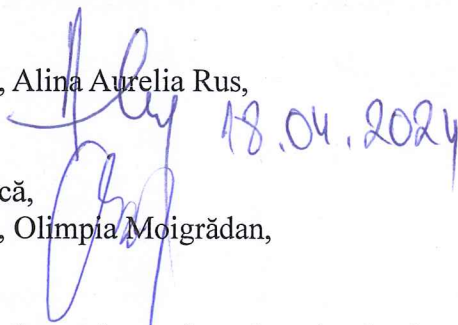 , Alina Aurelia Rus,
18.04.2024
că,
, Olimpia Moigrădan,